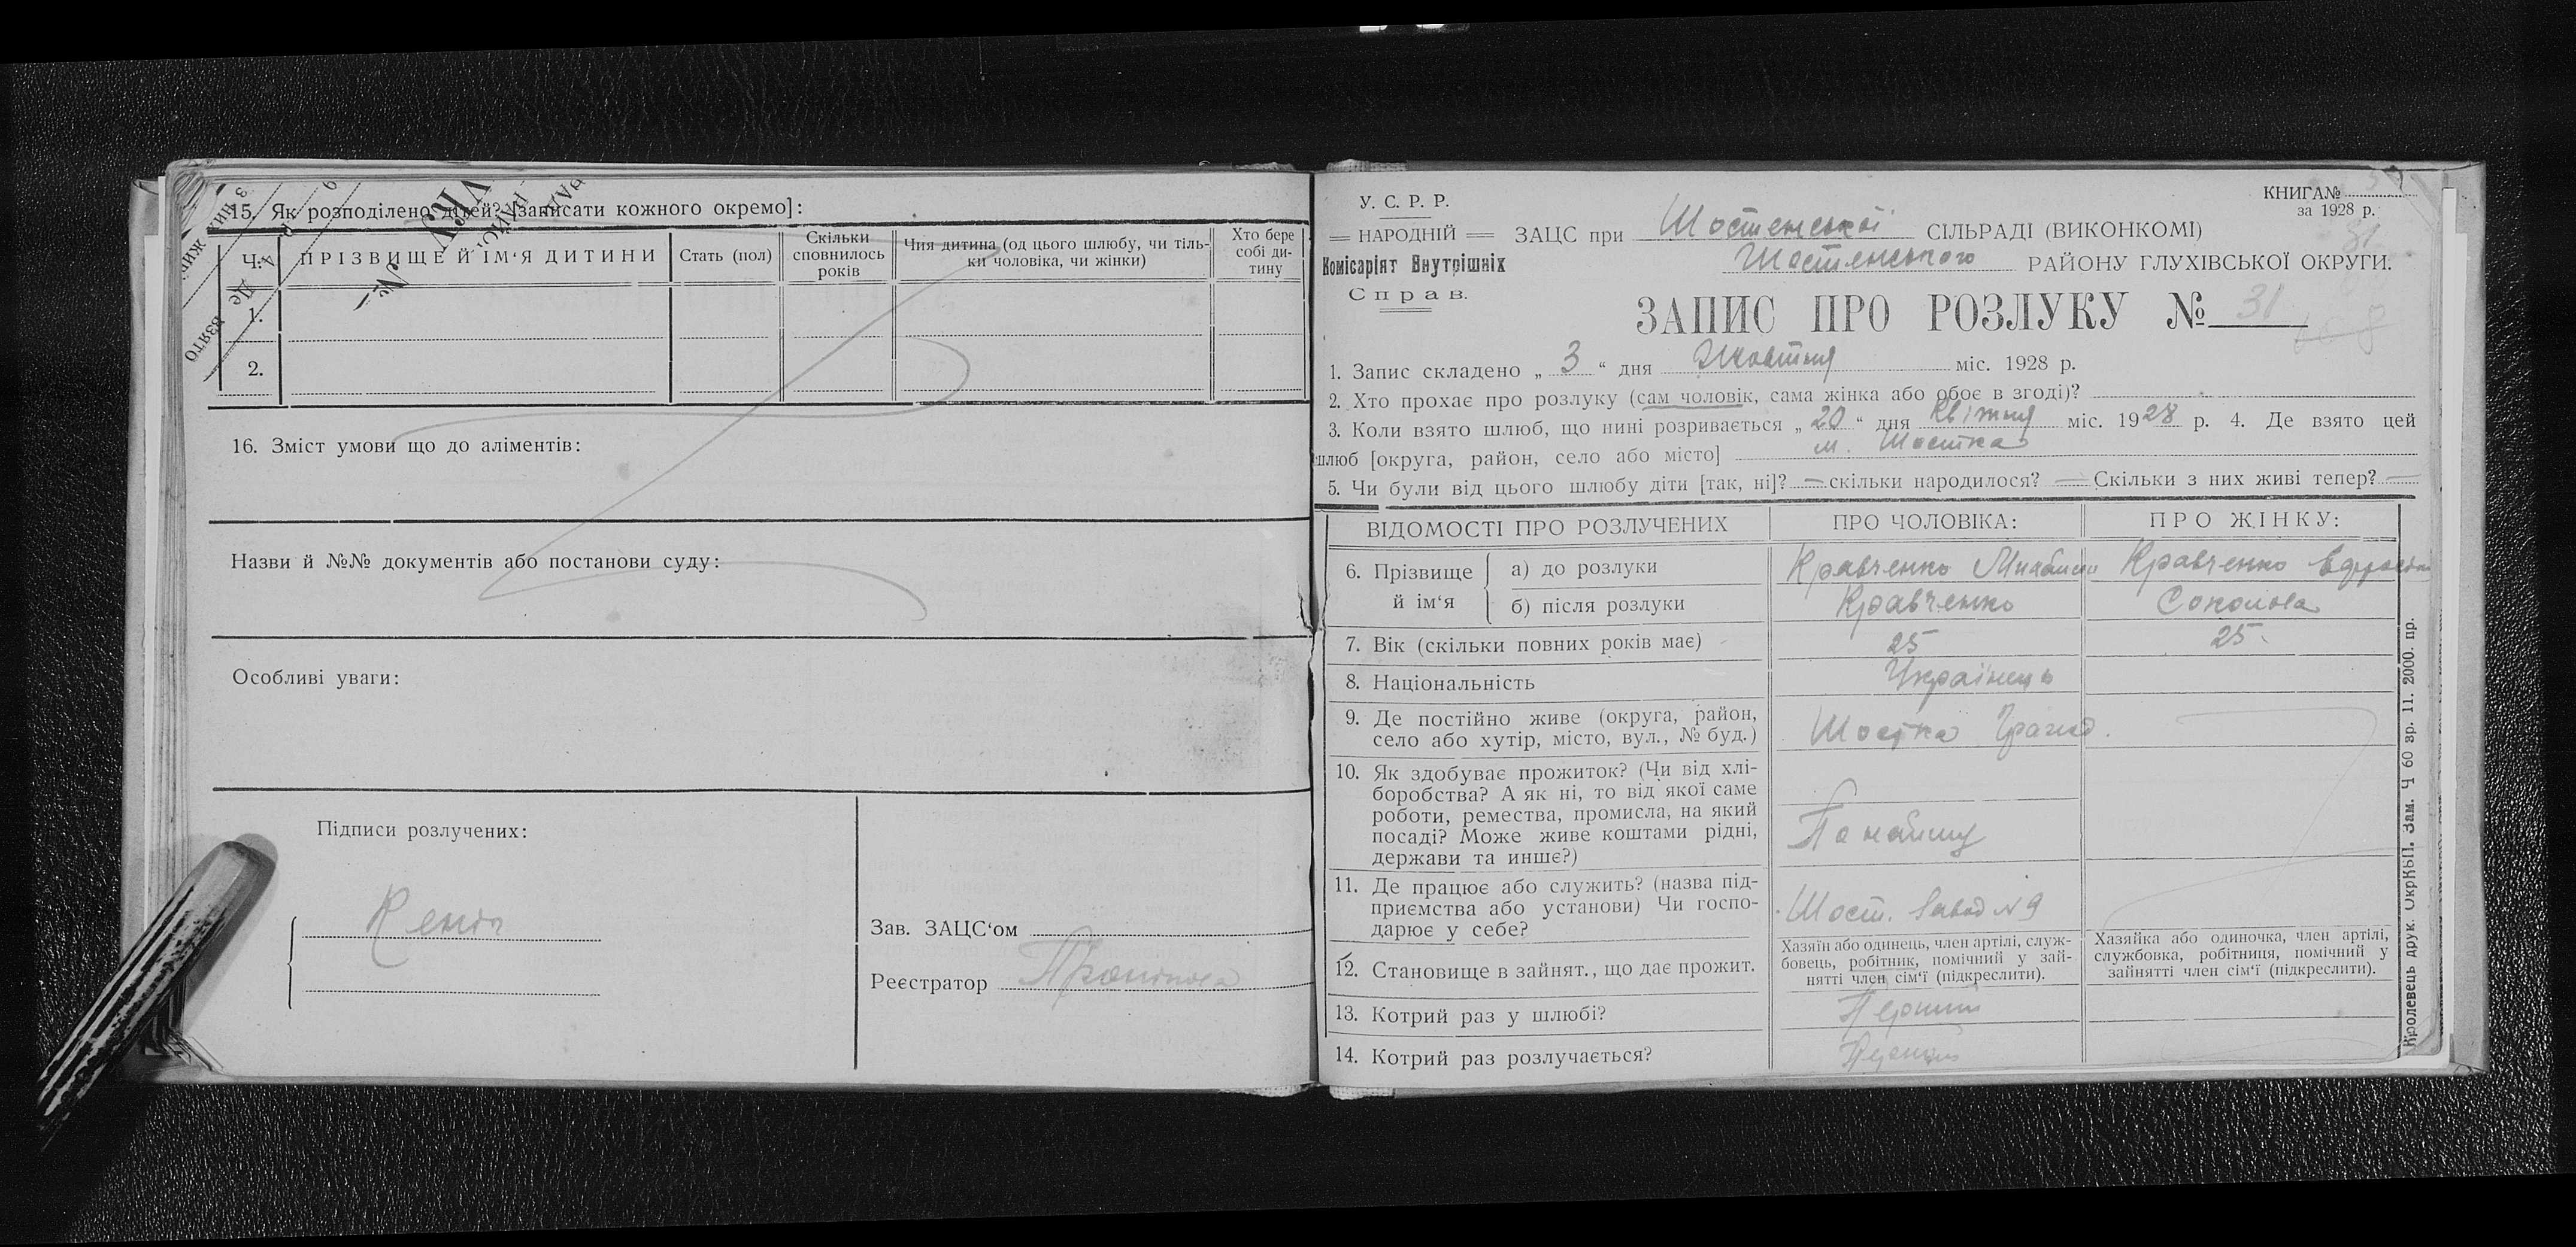 15. Як розподілено дітей? [записати кожного окремо]:
Ч. ПРІЗВИЩЕ Й ІМ‘Я ДИТИНИ
Стать (пол)
Скільки
сповнилось
років
Чия дитина (од цього шлюбу, чи тіль-
ки чоловіка, чи жінки)
Хто бере
собі ди-
тину
1.
2.
16. Зміст умови що до аліментів:
Назви й №№ документів або постанови суду:
Особливі уваги:
Підписи розлучених:
Зав. ЗАЦС‘ом
Реєстратор
У. С. Р. Р.
НАРОДНІЙ
Комісаріят Внутрішніх
Справ.
КНИГА№
за 1928 р.
31
ЗАЦС при Шостенської СІЛЬРАДІ (ВИКОНКОМІ)
Шостенського РАЙОНУ ГЛУХІВСЬКОЇ ОКРУГИ.
ЗАПИС ПРО РОЗЛУКУ № 31
1. Запис складено „ 3 “ дня Жовтня міс. 1928 р.
2. Хто прохає про розлуку (сам чоловік, сама жінка або обоє в згоді)?
3. Коли взято шлюб, що нині розривається „ 20 “ дня Квітня міс. 1928 р. 4. Де взято цей
шлюб [округа, район, село або місто] м. Шостка
5. Чи були від цього шлюбу діти [так, ні]? — скільки народилося? — Скільки з них живі тепер? —
ВІДОМОСТІ ПРО РОЗЛУЧЕНИХ
ПРО ЧОЛОВІКА:
ПРО ЖІНКУ:
6. Прізвище й ім‘я
а) до розлуки Кравченко Кравченко
б) після розлуки Кравченко Соколова
7. Вік (скільки повних років має) 25 25
8. Національність Українець
9. Де постійно живе (округа, район,
село або хутір, місто, вул., № буд.) Шостка
10. Як здобуває прожиток? (Чи від хлі-
боробства? А як ні, то від якої саме
роботи, ремества, промисла, на який
посаді? Може живе коштами рідні,
держави та инше?)
По найму
11. Де працює або служить? (назва під-
приємства або установи) Чи госпо-
дарює у себе?
Шост. Завод №9
12. Становище в зайнят., що дає прожит.
Хазяїн або одинець, член артілі, служ-
бовець, робітник, помічний у зай-
нятті член сім‘ї (підкреслити).
Хазяйка або одиночка, член артілі,
службовка, робітниця, помічний у
зайнятті член сім‘ї (підкреслити).
13. Котрий раз у шлюбі? Перший
14. Котрий раз розлучається? Перший
Кролевець друк. ОкрКВП. Зам. Ч 60 зр. 11. 2000. пр.